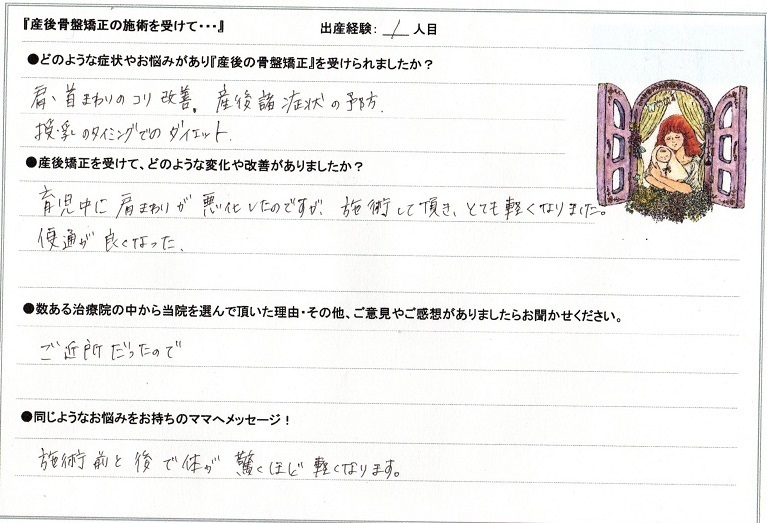 『産後骨盤矯正の施術を受けて・・・』 出産経験: 1 人目
●どのような症状やお悩みがあり『産後の骨盤矯正』を受けられましたか？
肩、首まわりのコリ改善。産後諸症状の予防.
授乳のタイミングでのダイエット.
●産後矯正を受けて、どのような変化や改善がありましたか？
育児中に肩まわりが悪化したのですが、施術して頂き、とても軽くなりました。
便通が良くなった.
●数ある治療院の中から当院を選んで頂いた理由・その他、ご意見やご感想がありましたらお聞かせください。
ご近所だったので
●同じようなお悩みをお持ちのママへメッセージ！
施術前と後で体が驚くほど軽くなります。